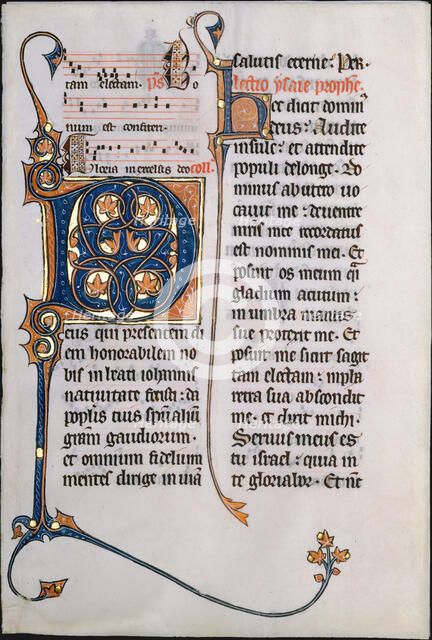 tam electam. ps Bo
num est confiteri
Gloria in excelsis deo coll.
Deus qui presentem di
em honorabilem no
bis in btati iohannis
natiuitate fecisti: da
populis tuis spiritalium
gram gaudiorum.
et omnium fidelium
mentes dirige in uiam
salutis eterne: Per.
lectio ysaie prophe.
Hec dicit domin
us: Audite
insule: et attendite
populi de longe. Do
minus ab utero uo
cauit me: de uentre
mris mee recordatus
est nominis mei. Et
posuit os meum quasi
gladium acutum:
in umbra manus
sue protexit me. Et
posuit me sicut sagit
tam electam: in pha
retra sua abscondit
me. et dixit michi.
Seruus meus es
tu israel: quia in
te gloriabor. Et nunc